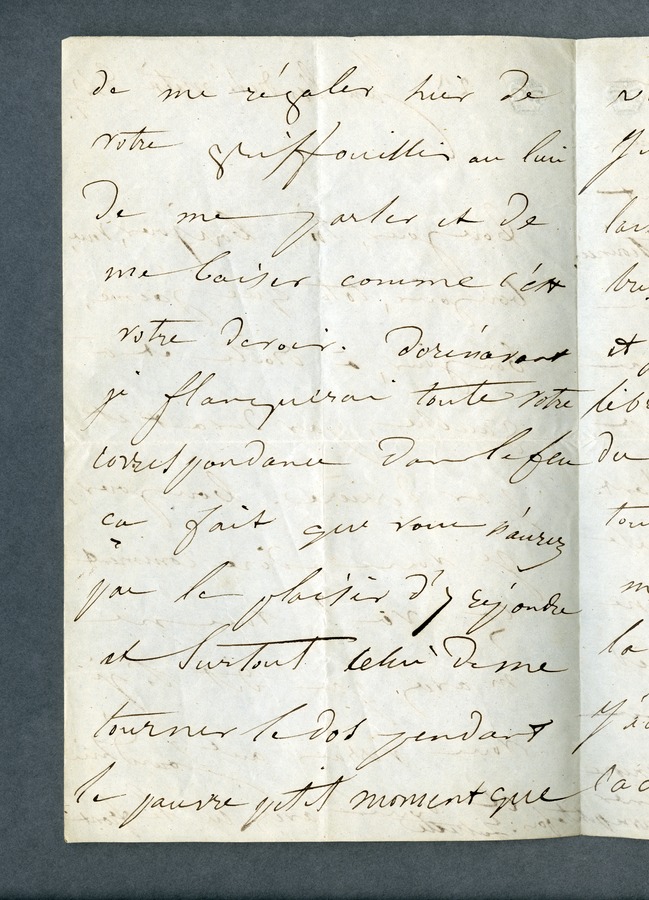 de me régaler hier de
votre griffouillis au lieu
de me parler et de
me baiser comme c'est
votre devoir. Dorénavant
je flanquerai toute votre
correspondance dans le feu
ça fait que vous n'aurez
pas le plaisir d'y répondre
et surtout celui de me
tourner le dos pendant
le pauvre petit moment que
et
du
la